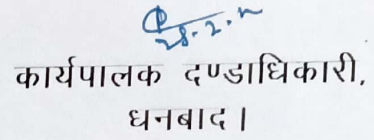 28.2.
कार्यपालक दण्डाधिकारी,
धनबाद।